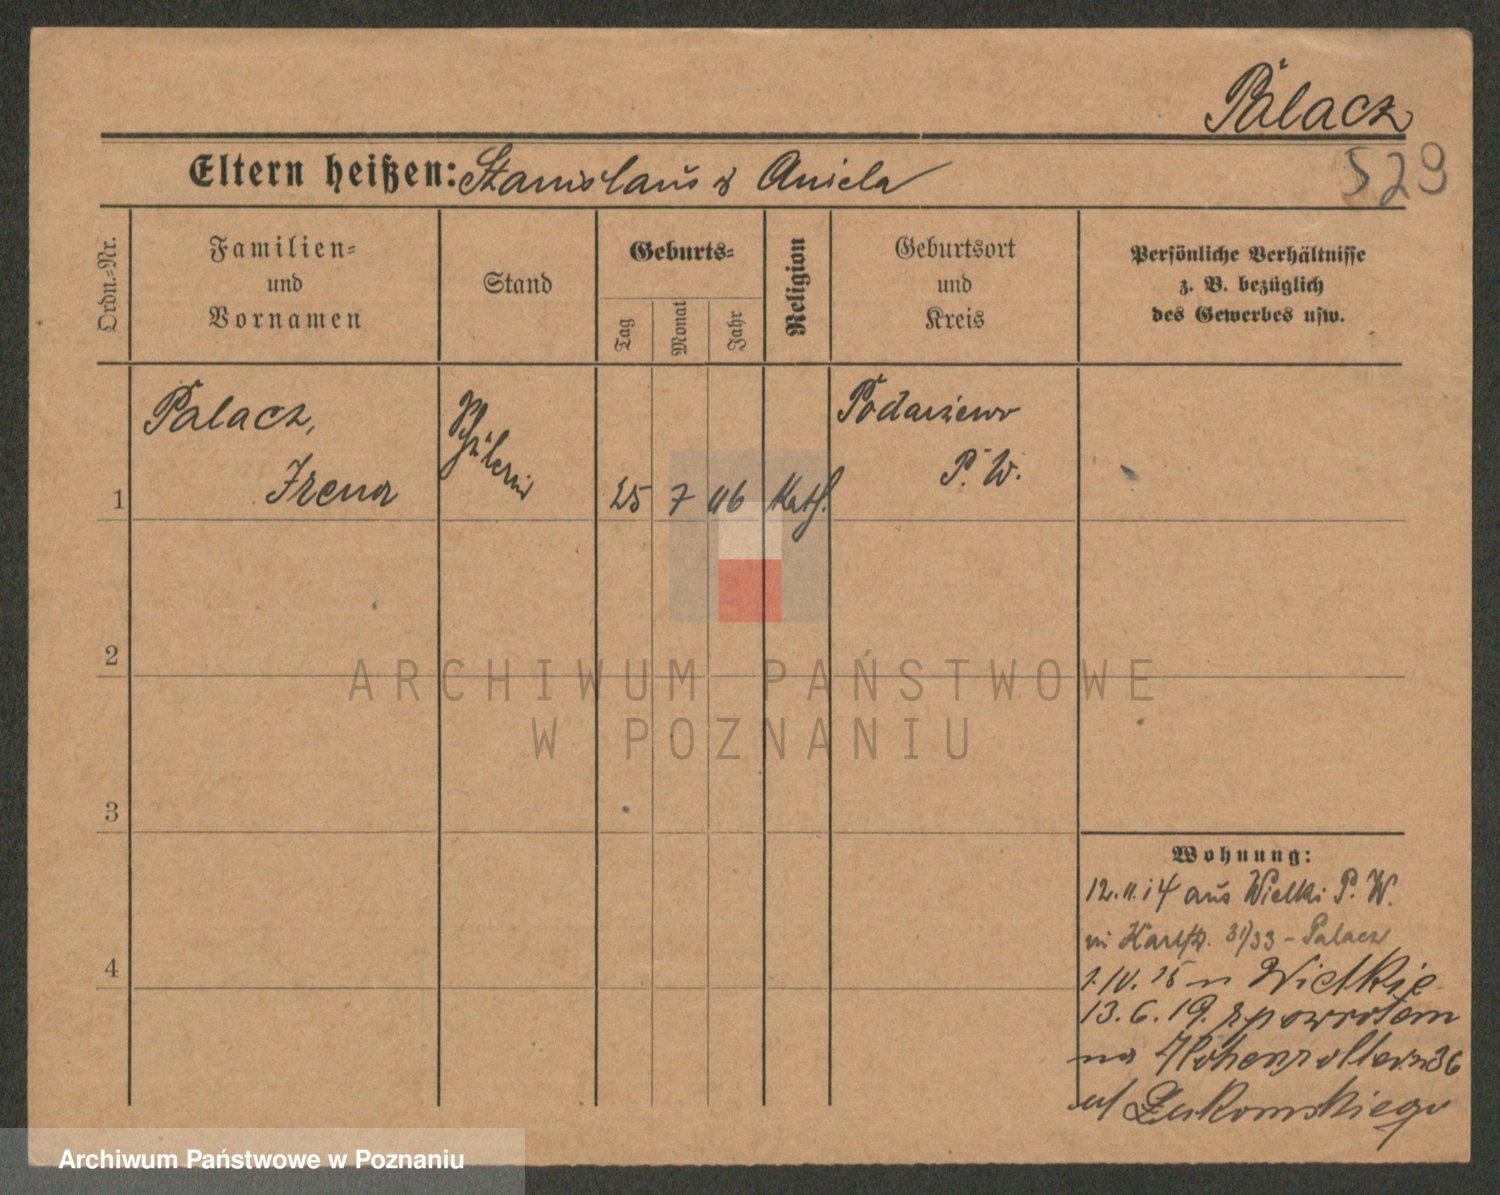 Palacz
529
Eltern heißen: Stanislaus & Aniela
Ordn.-Nr.
Familien-
und
Vornamen
Stand
Geburts-
Tag
Monat
Jahr
Religion
Geburtsort
und
Kreis
Persönliche Verhältnisse
z. B. bezüglich
des Gewerbes usw.
1
Palacz,
Irena
Schülerin
25 7 06 Kath.
Podarzewo
P. W.
2
3
4
Wohnung:
12.11.14 aus Wielki P. W.
in 31/33 - Palacz
1.IV.15 n Wielkie
13.6.19. z powrotem
na Hohenzollern 36
ul Żukowskiego
ARCHIWUM PAŃSTWOWE
W POZNANIU
Archiwum Państwowe w Poznaniu